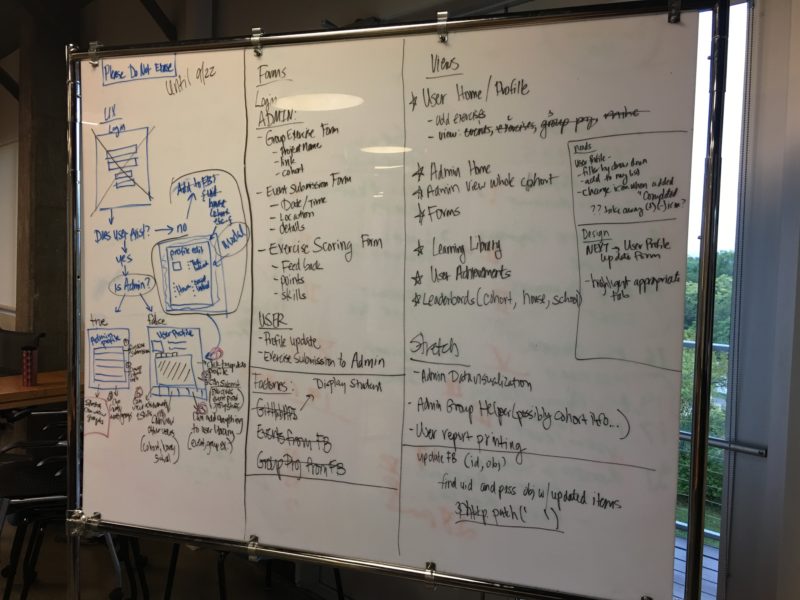 Please Do Not Erase
until 9/22
UX
Login
Does User Exist?
no
Add to EBST
profile edit
Modal
yes
is Admin?
true
false
Admin profile
User Profile
(cohort, house, school)
Forms
Login
ADMIN:
- Group Exercise Form
- Project Name
- link
- cohort
- Event Submission Form
- Date/Time
- Location
- details
- Exercise Scoring Form
- Feedback
- points
- skills
USER
- Profile update
- Exercise Submission to Admin
Factories:
Display Student
GitHub APIs
Events from FB
Group Proj from FB
Views
☆ User Home/Profile
- add exercises
- view: events, exercises, group proj,
☆ Admin Home
☆ Admin View Whole Cohort
☆ Forms
☆ Learning Library
☆ User Achievements
☆ Leaderbords (cohort, house, school)
Stretch
- Admin Data visualization
- Admin Group Helper (possibly cohort info...)
- User report printing
update FB (id, obj)
find uid and pass obj w/ updated items
$http patch(' ')
needs
User Profile -
- filter by drow down
- add to my list
- change icon when added
"Completed
?? take away (+)(-) icon?
Design
NEXT → User Profile
update Form
- highlight appropriate
tabs